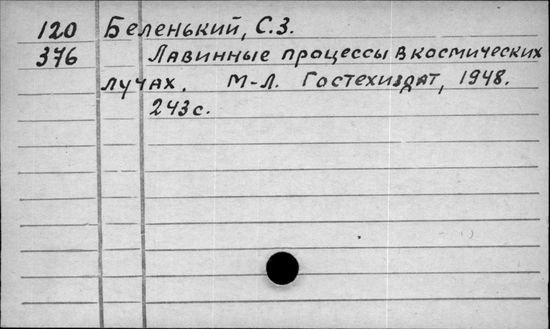 120 Беленький, С.З.
376 Лавинные процессы в космических
лучах. М-Л. Гостехиздат, 1948.
243 с.